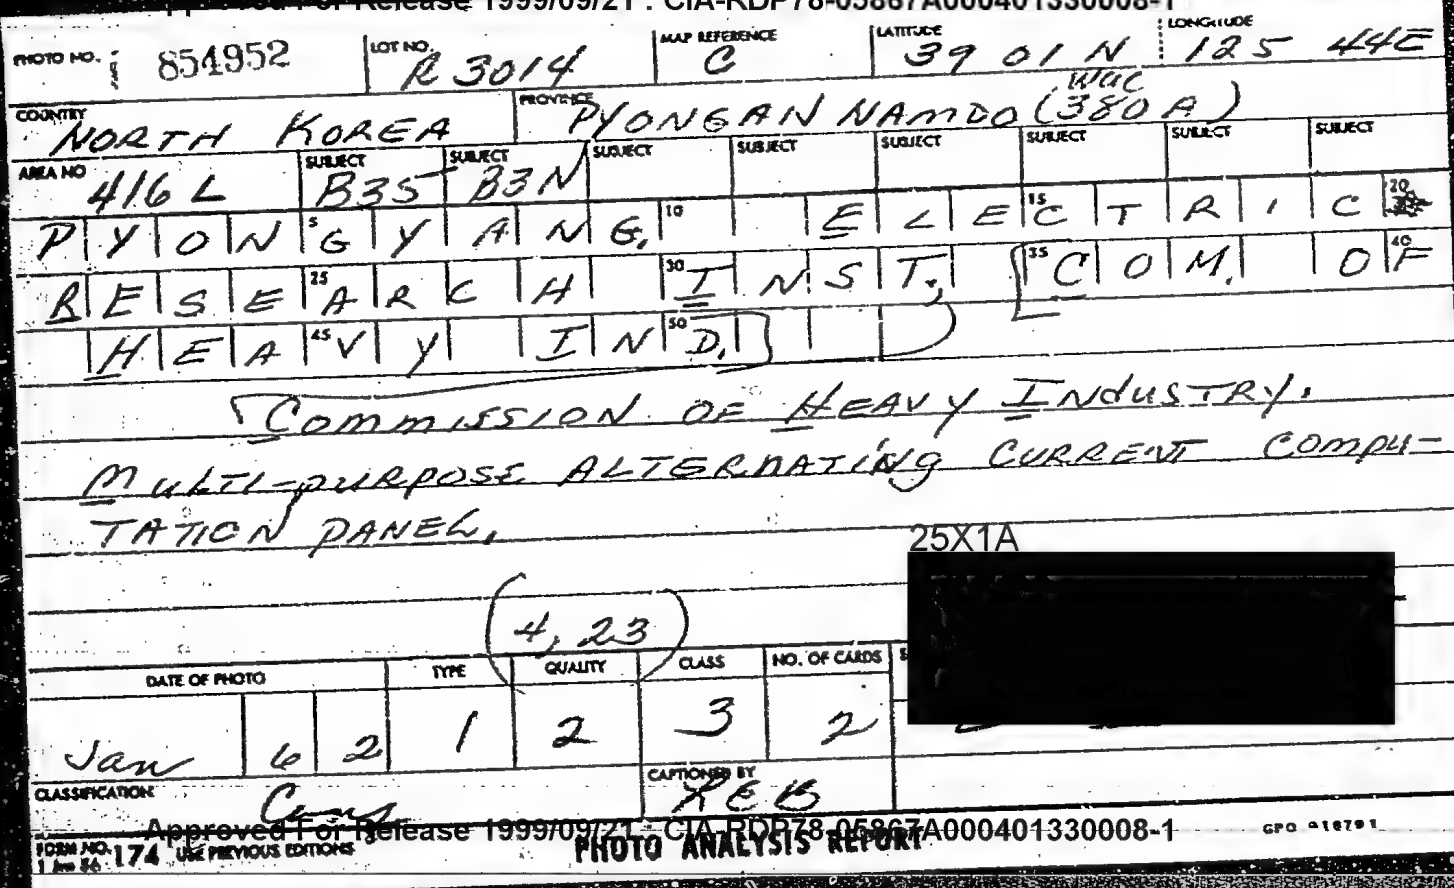 Approved For Release 1999/09/21 : CIA-RDP78-05867A000401330008-1
PHOTO NO. 854952 LOT NO. R 3014 MAP REFERENCE C LATITUDE 39 01 N LONGITUDE 125 44E
COUNTRY NORTH KOREA PROVINCE PYONGAN NAMDO (WAC 380 A)
AREA NO 416 L SUBJECT B35 SUBJECT B3N SUBJECT SUBJECT SUBJECT SUBJECT SUBJECT SUBJECT
PYON 5 GYANG. 10 ELE 15 CTRIC 20
RESE 25 ARCH 30 INST., [35 COM. OF 40
HEA 45 VY IND. 50 ]
[COMMISSION OF HEAVY INDUSTRY.
MULTI-PURPOSE ALTERNATING CURRENT COMPU-
TATION PANEL.
25X1A
(4, 23)
DATE OF PHOTO TYPE QUALITY CLASS NO. OF CARDS
Jan 6 2 1 2 3 2
CLASSIFICATION CAPTIONED BY REB
Approved For Release 1999/09/21 : CIA-RDP78-05867A000401330008-1
FORM NO. 174 USE PREVIOUS EDITIONS PHOTO ANALYSIS REPORT GPO 918791
1 Jun 56